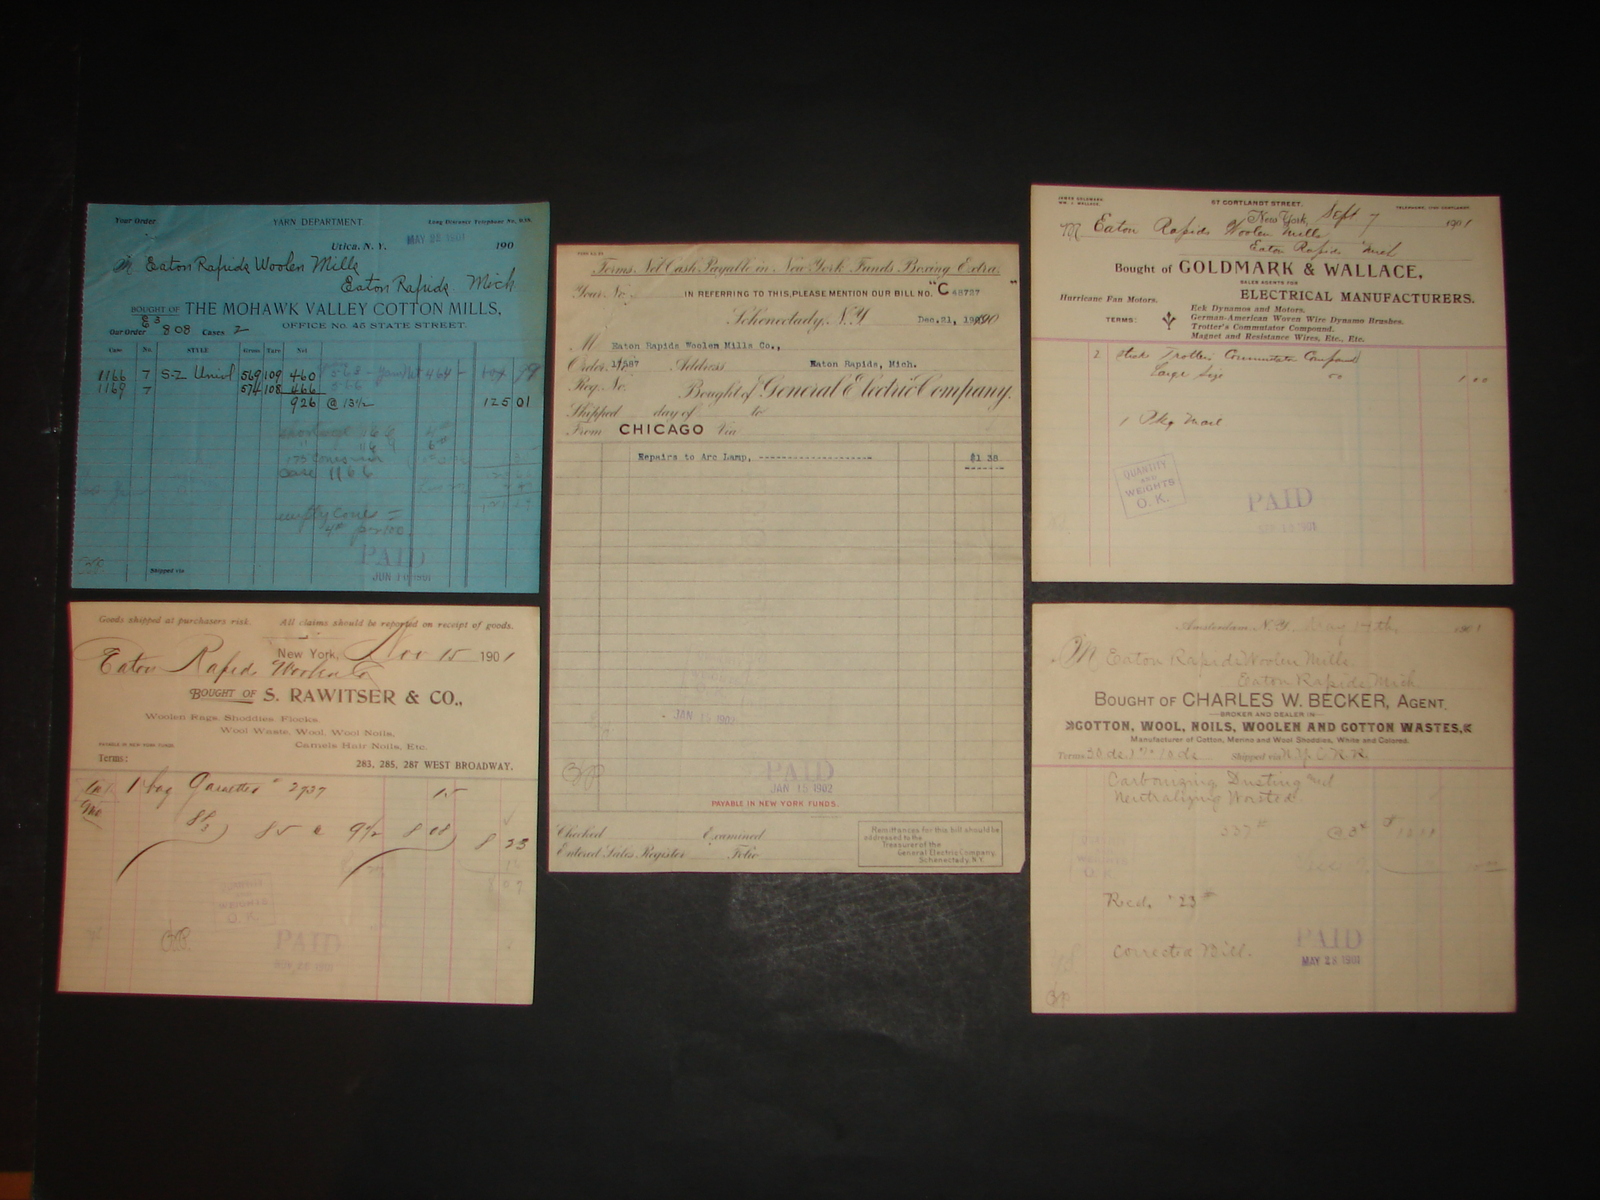 Your Order YARN DEPARTMENT. Long Distance Telephone No. 938.
Utica, N. Y. MAY 28 1901 190
M Eaton Rapids Woolen Mills
Eaton Rapids Mich
BOUGHT OF THE MOHAWK VALLEY COTTON MILLS,
OFFICE No. 45 STATE STREET.
Our Order 808 Cases 2
Case No. STYLE Gross Tare Net
1166 7 S-2 Univl 569 109 460
1169 7 574 108 466
926 @ 13½ 125 01
Case 1166
empty Cone =
4# per 100.
PAID
JUN 1901
Shipped via
Goods shipped at purchasers risk. All claims should be reported on receipt of goods.
New York, Nov 15 1901
Eaton Rapids Woolen Co
BOUGHT OF S. RAWITSER & CO.,
Woolen Rags, Shoddies, Flocks,
Wool Waste, Wool, Wool Noils,
Camels Hair Noils, Etc.
PAYABLE IN NEW YORK FUNDS
Terms: 283, 285, 287 WEST BROADWAY.
1 bag Garnetted 2737 15
88
3 85 @ 9½ 8 08 8 23
QUANTITY
AND
WEIGHTS
O. K.
PAID
Terms, Net Cash, Payable in New York Funds Boxing Extra.
Your No. IN REFERRING TO THIS, PLEASE MENTION OUR BILL NO. "C 68727 "
Schenectady, N.Y. Dec. 21, 1900
M Eaton Rapids Woolen Mills Co.,
Order 17587 Address Eaton Rapids, Mich.
Reg. No. Bought of General Electric Company.
Shipped day of to
From CHICAGO Via
Repairs to Arc Lamp, $1 38
JAN 15 1902
PAID
JAN 15 1902
PAYABLE IN NEW YORK FUNDS.
Checked Examined
Entered Sales Register Folio
Remittances for this bill should be
addressed to the
Treasurer of the
General Electric Company,
Schenectady, N.Y.
JAMES GOLDMARK.
WM. I. WALLACE.
57 CORTLANDT STREET.
New York, Sept 7 1901
M Eaton Rapids Woolen Mills
Eaton Rapids Mich
Bought of GOLDMARK & WALLACE,
SALES AGENTS FOR
ELECTRICAL MANUFACTURERS.
Hurricane Fan Motors.
Eck Dynamos and Motors.
TERMS: German-American Woven Wire Dynamo Brushes.
Trotter's Commutator Compound.
Magnet and Resistance Wires, Etc., Etc.
2 Sticks Trotters Commutator Compound
Large Size 50 1 00
1 Pkg Mail
QUANTITY
AND
WEIGHTS
O. K.
PAID
Amsterdam, N.Y., May 14th 1901
M Eaton Rapids Woolen Mills
Eaton Rapids Mich
BOUGHT OF CHARLES W. BECKER, AGENT,
BROKER AND DEALER IN
COTTON, WOOL, NOILS, WOOLEN AND COTTON WASTES,
Manufacturer of Cotton, Merino and Wool Shoddies, White and Colored.
Terms 30 ds. 1% 10 ds. Shipped via N.Y.C.R.R.
Carbonizing Dusting and
Neutralizing Worsted.
337# @ 3¢
Recd. 23#
Corrected Bill.
PAID
MAY 28 1901